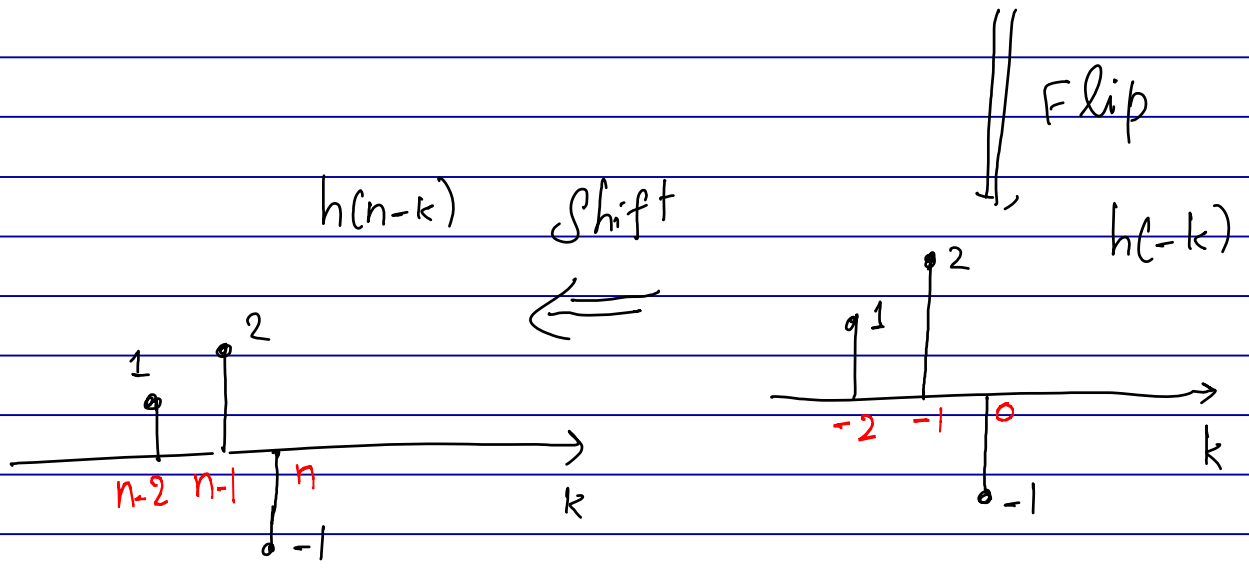 Flip
h(n-k)
Shift
h(-k)
2
1
-2
-1
0
k
-1
1
2
n-2
n-1
n
k
-1